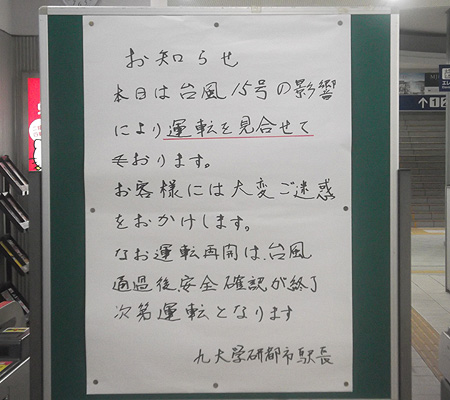 お知らせ
本日は台風15号の影響
により運転を見合せて
おります。
お客様には大変ご迷惑
をおかけします。
なお運転再開は、台風
通過後、安全確認が終了
次第運転となります
九大学研都市駅長